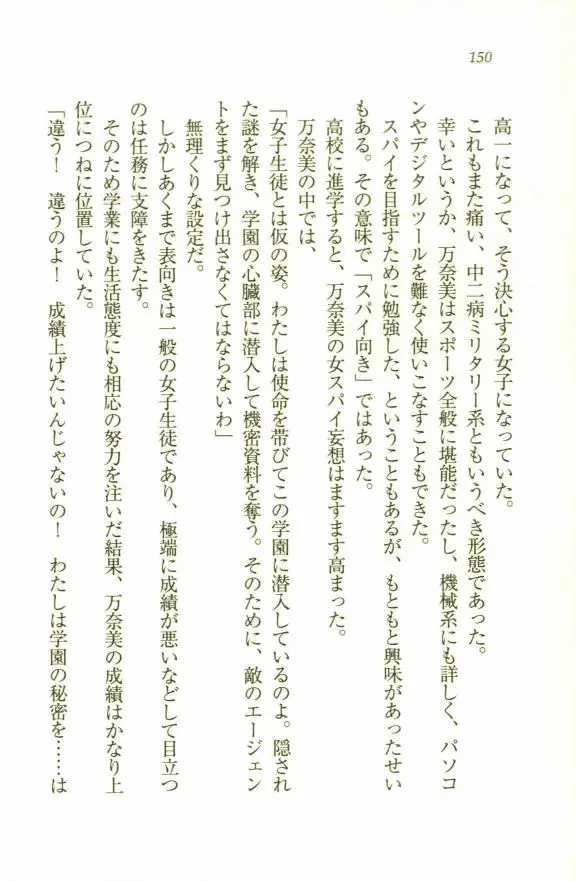 150
高一になって、そう決心する女子になっていた。
これもまた痛い、中二病ミリタリー系ともいうべき形態であった。
幸いというか、万奈美はスポーツ全般に堪能だったし、機械系にも詳しく、パソコ
ンやデジタルツールを難なく使いこなすこともできた。
スパイを目指すために勉強した、ということもあるが、もともと興味があったせい
もある。その意味で「スパイ向き」ではあった。
高校に進学すると、万奈美の女スパイ妄想はますます高まった。
万奈美の中では、
「女子生徒とは仮の姿。わたしは使命を帯びてこの学園に潜入しているのよ。隠され
た謎を解き、学園の心臓部に潜入して機密資料を奪う。そのために、敵のエージェン
トをまず見つけ出さなくてはならないわ」
無理くりな設定だ。
しかしあくまで表向きは一般の女子生徒であり、極端に成績が悪いなどして目立つ
のは任務に支障をきたす。
そのため学業にも生活態度にも相応の努力を注いだ結果、万奈美の成績はかなり上
位につねに位置していた。
「違う！　違うのよ！　成績上げたいんじゃないの！　わたしは学園の秘密を……は